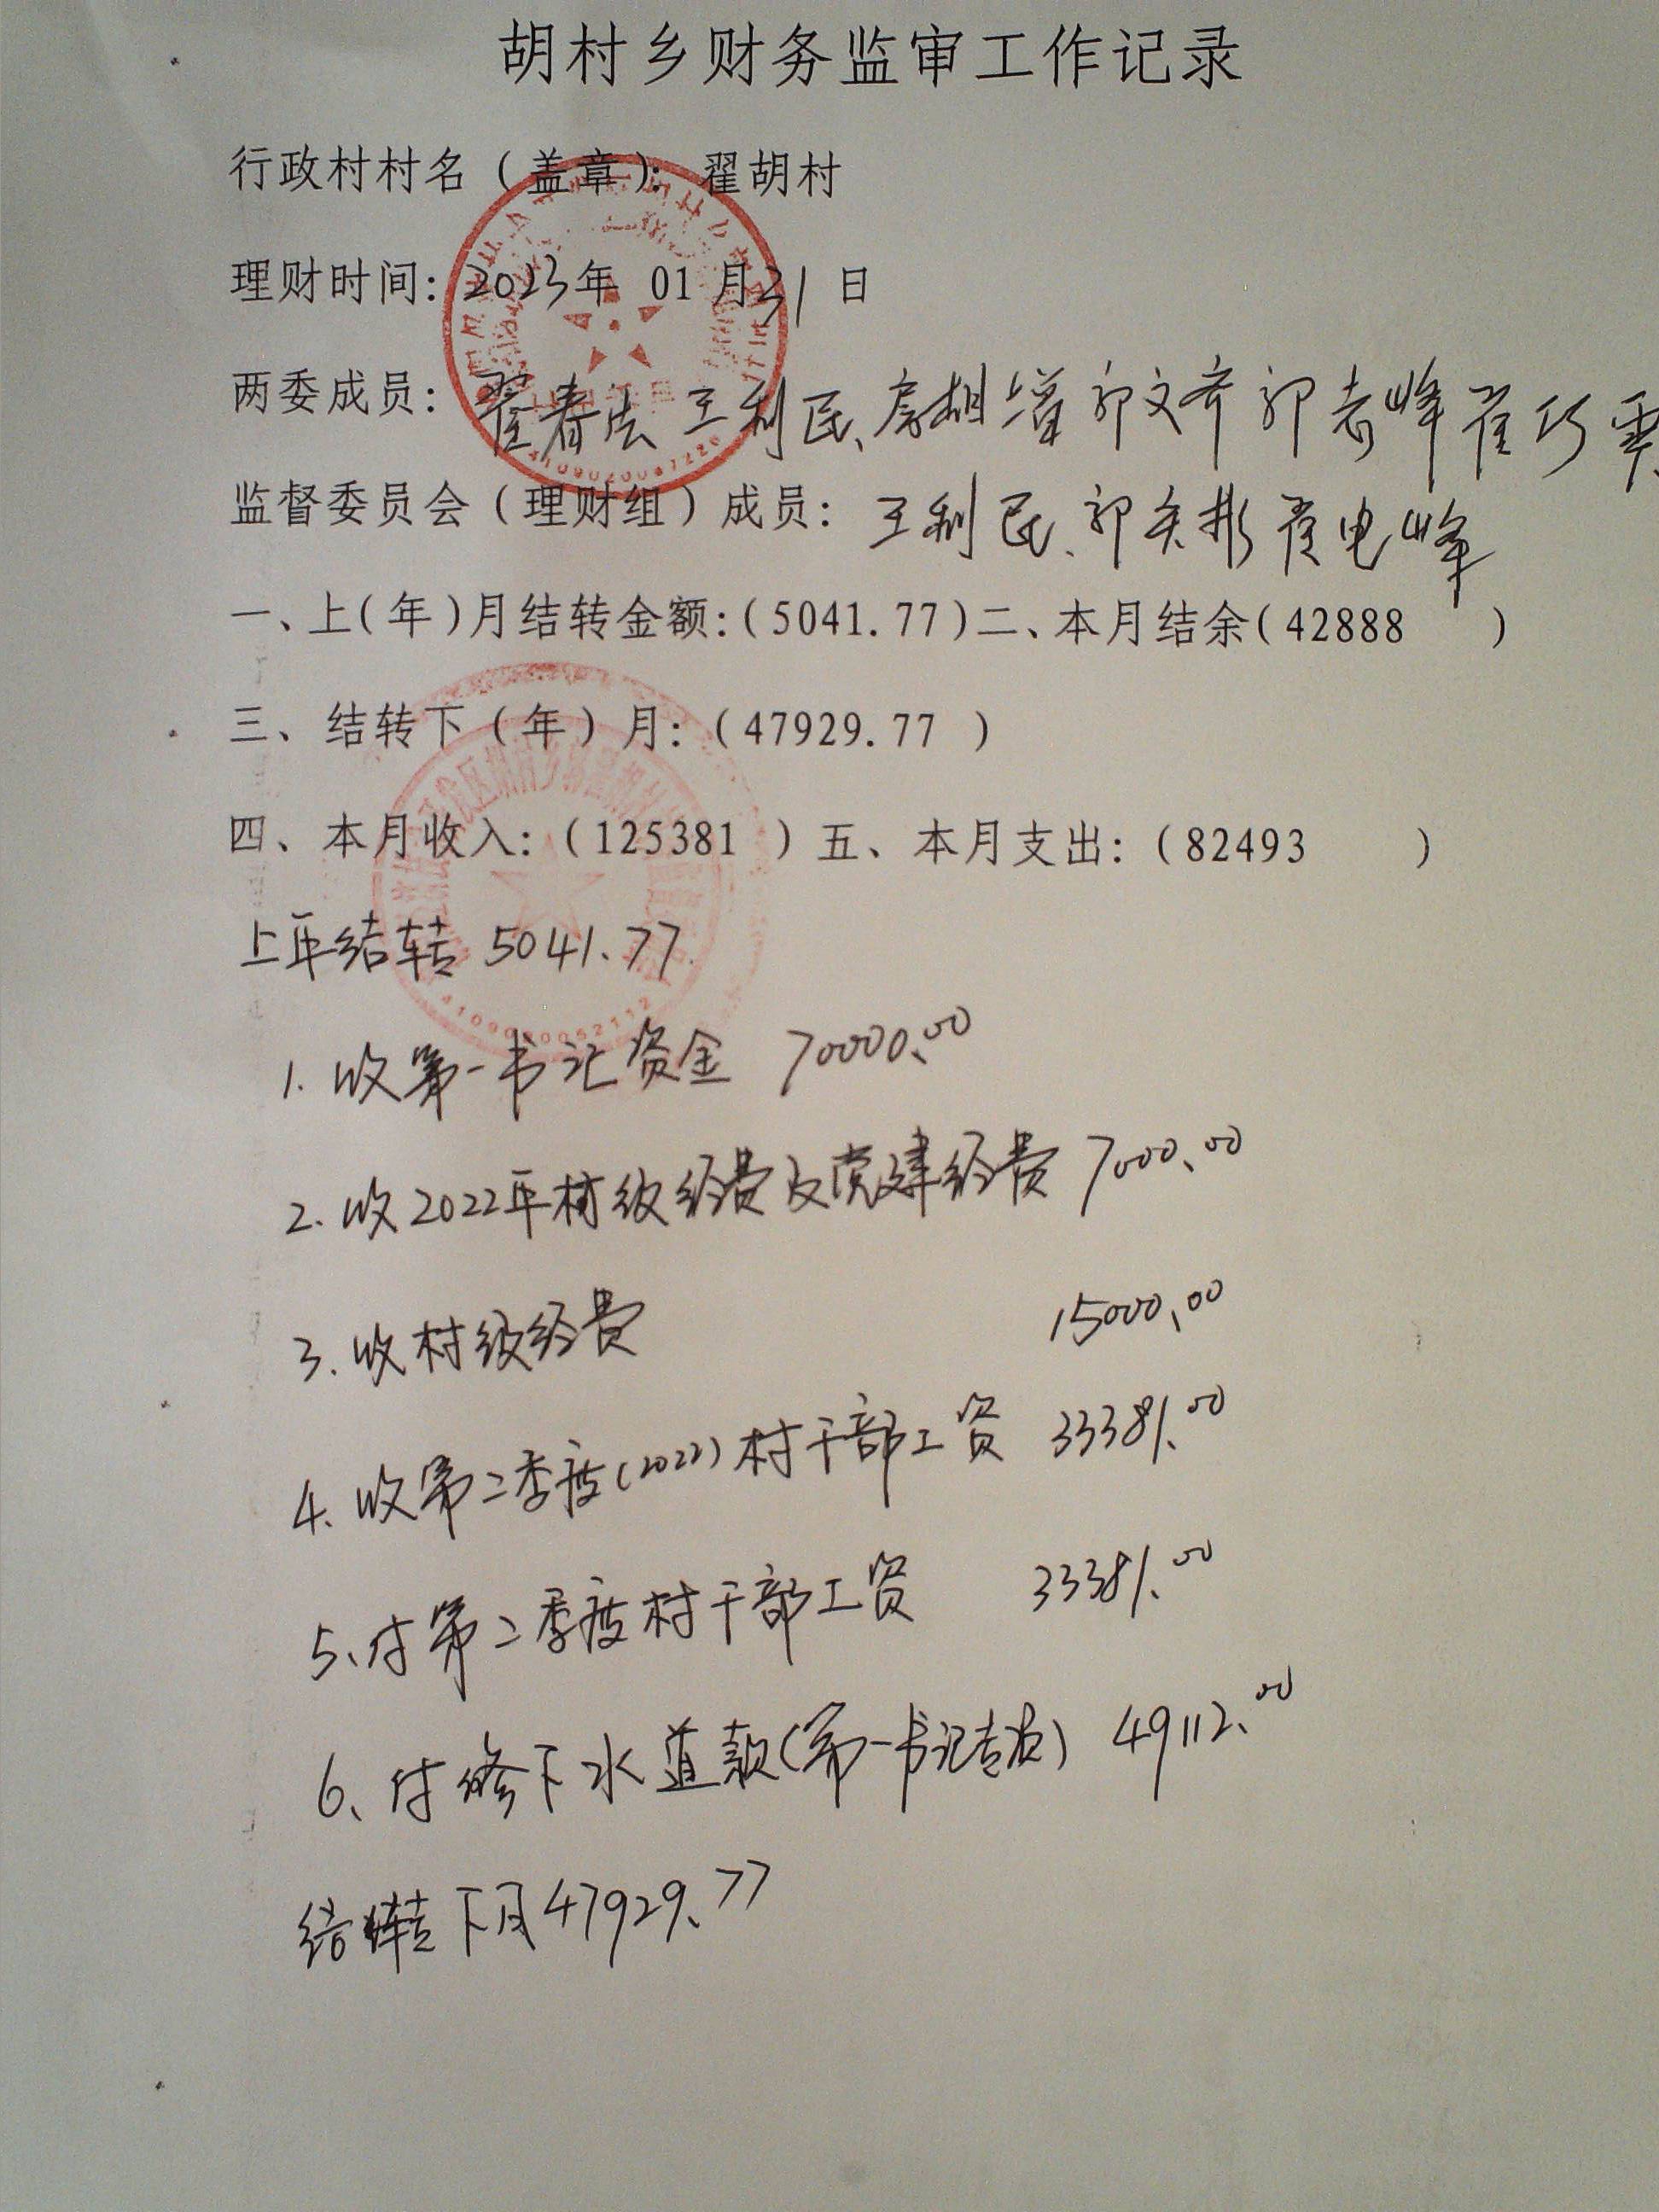 胡村乡财务监审工作记录
行政村村名（盖章）：翟胡村
理财时间：2023年 01月31日
两委成员：翟春法 王利民、房胡增 郭文齐 郭志峰 崔巧
监督委员会（理财组）成员：王利民、郭关彬 电峰
一、上(年)月结转金额：(5041.77)二、本月结余(42888 )
三、结转下（年）月：(47929.77 )
四、本月收入：(125381 ) 五、本月支出：(82493 )
上年结转 5041.77
1. 收第一书记资金 70000.00
2. 收2022年村级经费及党建经费 7000.00
3. 收村级经费 15000.00
4. 收第二季度(2022)村干部工资 33381.00
5、付第二季度村干部工资 33381.00
6、付修下水道款(第一书记专资) 49112.00
结转下月47929.77
4109020052112